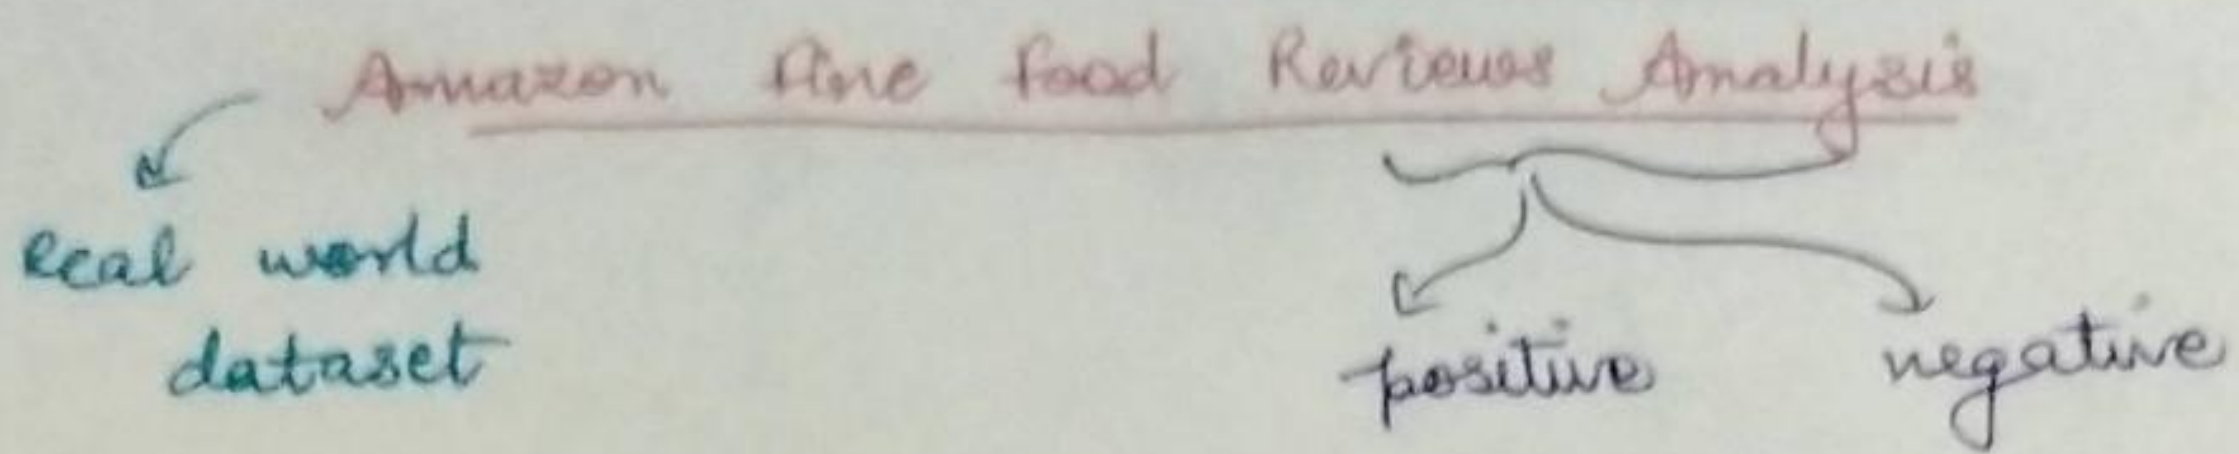 Amazon Fine Food Reviews Analysis
Real world
dataset
positive negative